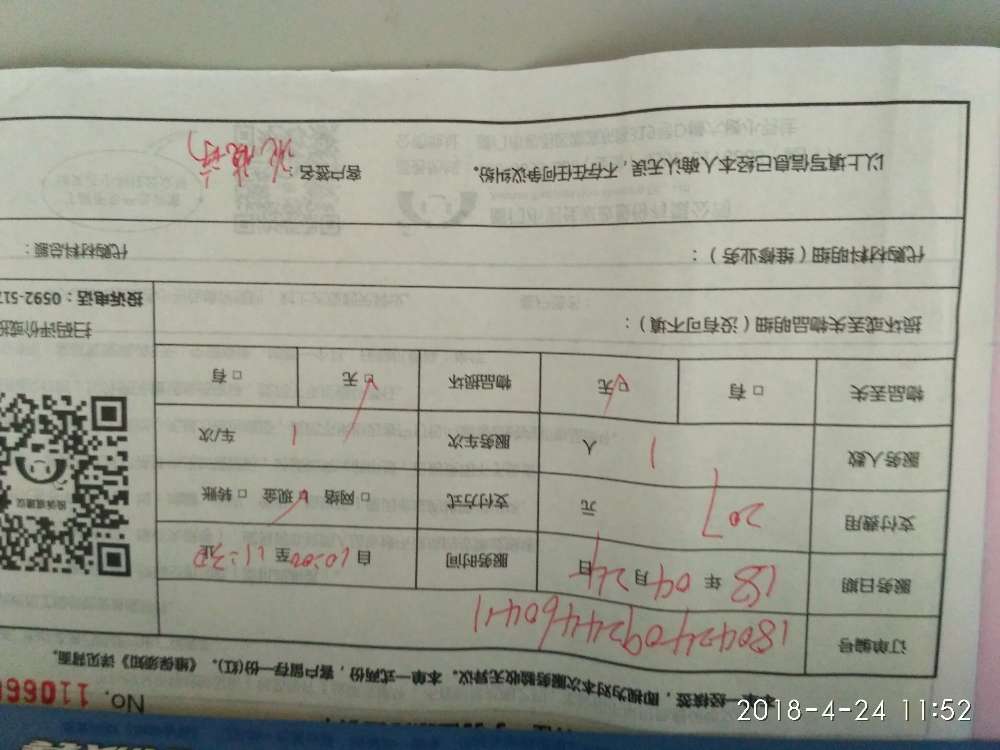 No. 11066
本单一经核签，即视为对本次服务验收无异议。本单一式两份，客户留存一份(红)。《维保须知》详见背面。
订单编号 180424092446041
服务日期 18 年 04 月 24 日 服务时间 自 10:00 至 11:30 止
支付费用 207 元 支付方式 □ 网络 □ 现金 □ 转账
服务人数 1 人 服务车次 1 车/次
物品丢失 □ 有 □ 无 物品损坏 □ 无 □ 有
投诉或建议
损坏或丢失物品明细（没有可不填）：
扫码评价或投
投诉电话：0592-517
代购材料明细（维修业务）：
代购材料总额：
以上填写信息已经本人确认无误，不存在任何争议纠纷。
客户签名：
2018-4-24 11:52